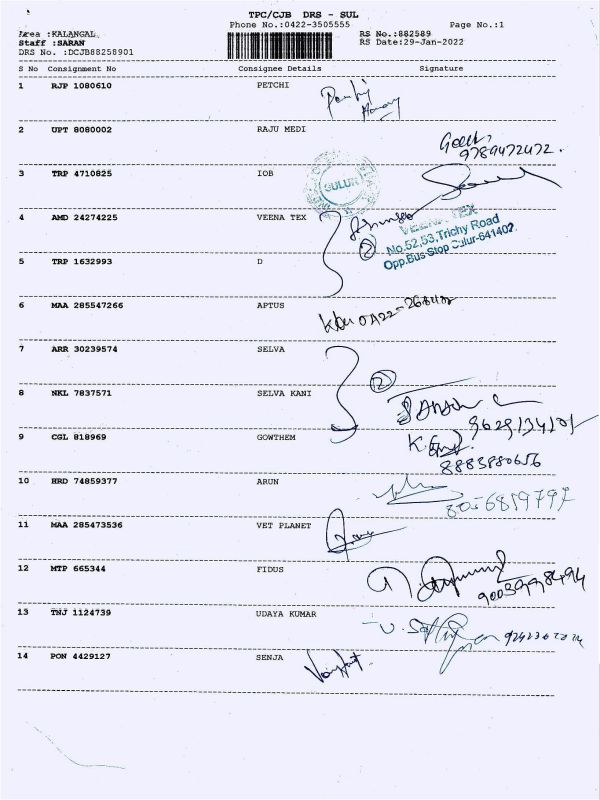 TPC/CJB DRS - SUL
Phone No.:0422-3505555 Page No.:1
Area :KALANGAL RS No.:882589
Staff :SARAN RS Date:29-Jan-2022
DRS No. :DCJB88258901
S No Consignment No Consignee Details Signature
1 RJP 1080610 PETCHI
2 UPT 8080002 RAJU MEDI
9789472472.
3 TRP 4710825 IOB
SULUR
4 AMD 24274225 VEENA TEX
VEENA TEX
No.52,53,Trichy Road
Opp.Bus Stop Sulur-641402
2
5 TRP 1632993 D
6 MAA 285547266 APTUS
7 ARR 30239574 SELVA
2
8 NKL 7837571 SELVA KANI
9 CGL 818969 GOWTHEM
8883880656
10 HRD 74859377 ARUN
11 MAA 285473536 VET PLANET
12 MTP 665344 FIDUS
13 TNJ 1124739 UDAYA KUMAR
14 PON 4429127 SENJA